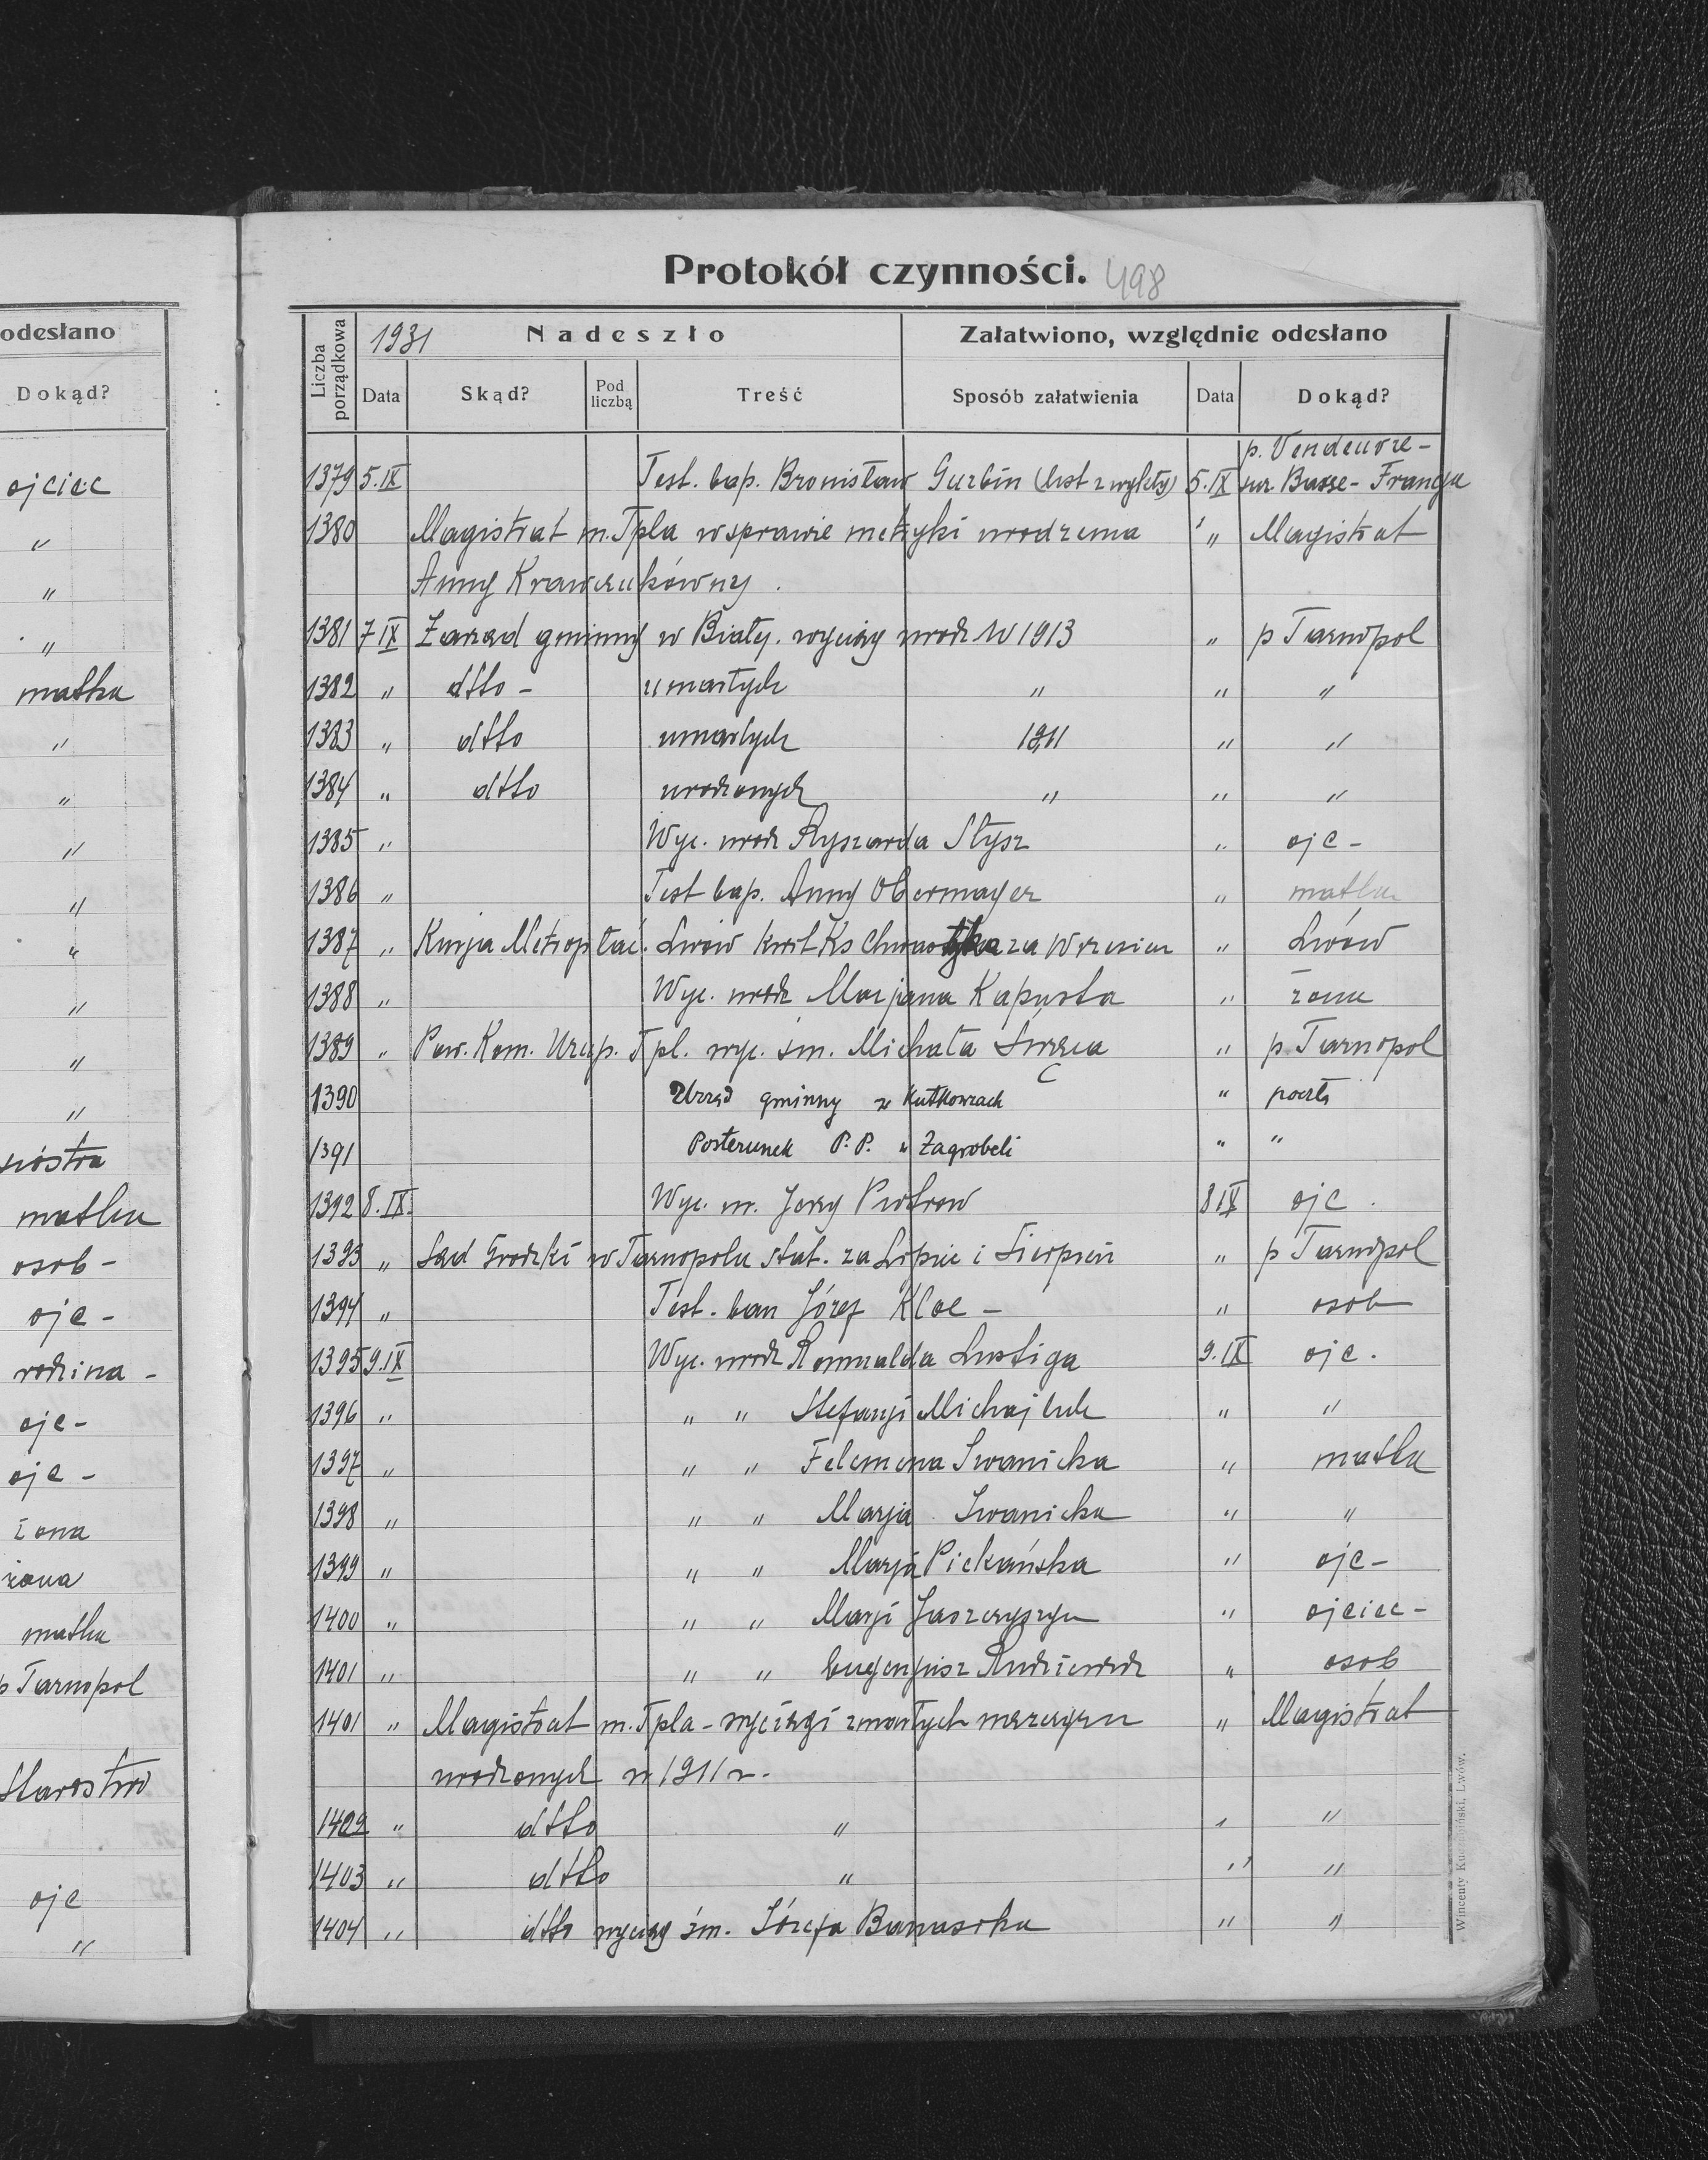 odesłano
Dokąd?
ojciec
"
"
"
matka
"
"
"
"
"
"
"
"
siostra
matka
osob -
ojc -
rodzina -
ojc -
ojc -
żona
żona
matka
p Tarnopol
Starostwo
ojc
"
Protokół czynności. 498
Liczba porządkowa
1931 Nadeszło
Załatwiono, względnie odesłano
Data Skąd? Pod liczbą Treść Sposób załatwienia Data Dokąd?
p. Vendeuvre -
1379 5.IX Test. bap. Bronisław Gurbin (list zwykły) 5.IX sur Basse - Francja
1380 Magistrat m. Tpla w sprawie metryki urodzenia " Magistrat
Anny Krawczukówny.
1381 7 IX Zarząd gminny w Białej. wyciąg urodz. W 1913 " p Tarnopol
1382 " dtto - umarłych " " "
1383 " dtto umarłych 1911 " "
1384 " dtto urodzonych " " "
1385 " Wyc. urodz Ryszarda Słysz " ojc -
1386 " Test bap. Anny Obermayer " matka
1387 " Kurja Metrop łac. Lwów kwit Ks za Wrzesień " Lwów
1388 " Wyc. urodz Marjana Kapusta " żona
1389 " Pow. Kom. Uzup. Tpl. wyc. śm. Michała " p Tarnopol
1390 Urząd gminny w Kutkowcach " poczta
1391 Posterunek P. P. w Zagrobeli " "
1392 8.IX. Wyc. ur. Jerzy Piotrow 8 IX ojc.
1393 " Sąd Grodzki w Tarnopolu stat. za Lipiec i Sierpień " p Tarnopol
1394 " Test. ban Józef Kloc - " osob
1395 9.IX Wyc. urodz Romualda Lustiga 9.IX ojc.
1396 " " " Stefanji Michajluk " "
1397 " " " Felemena Iwanicka " matka
1398 " " " Marja Iwanicka " "
1399 " " " Marja Piekańska " ojc -
1400 " " " Marji Jaszczyszyn " ojciec -
1401 " " " Eugenjusz " osob
1401 " Magistrat m. Tpla - wyciągi zmarłych mężczyzn " Magistrat
urodzonych w 1911 r.
1402 " dtto " " "
1403 " dtto " " "
1404 " dtto wyciąg śm. Józefa Banaszka " "
Wincenty Kuczabiński, Lwów.